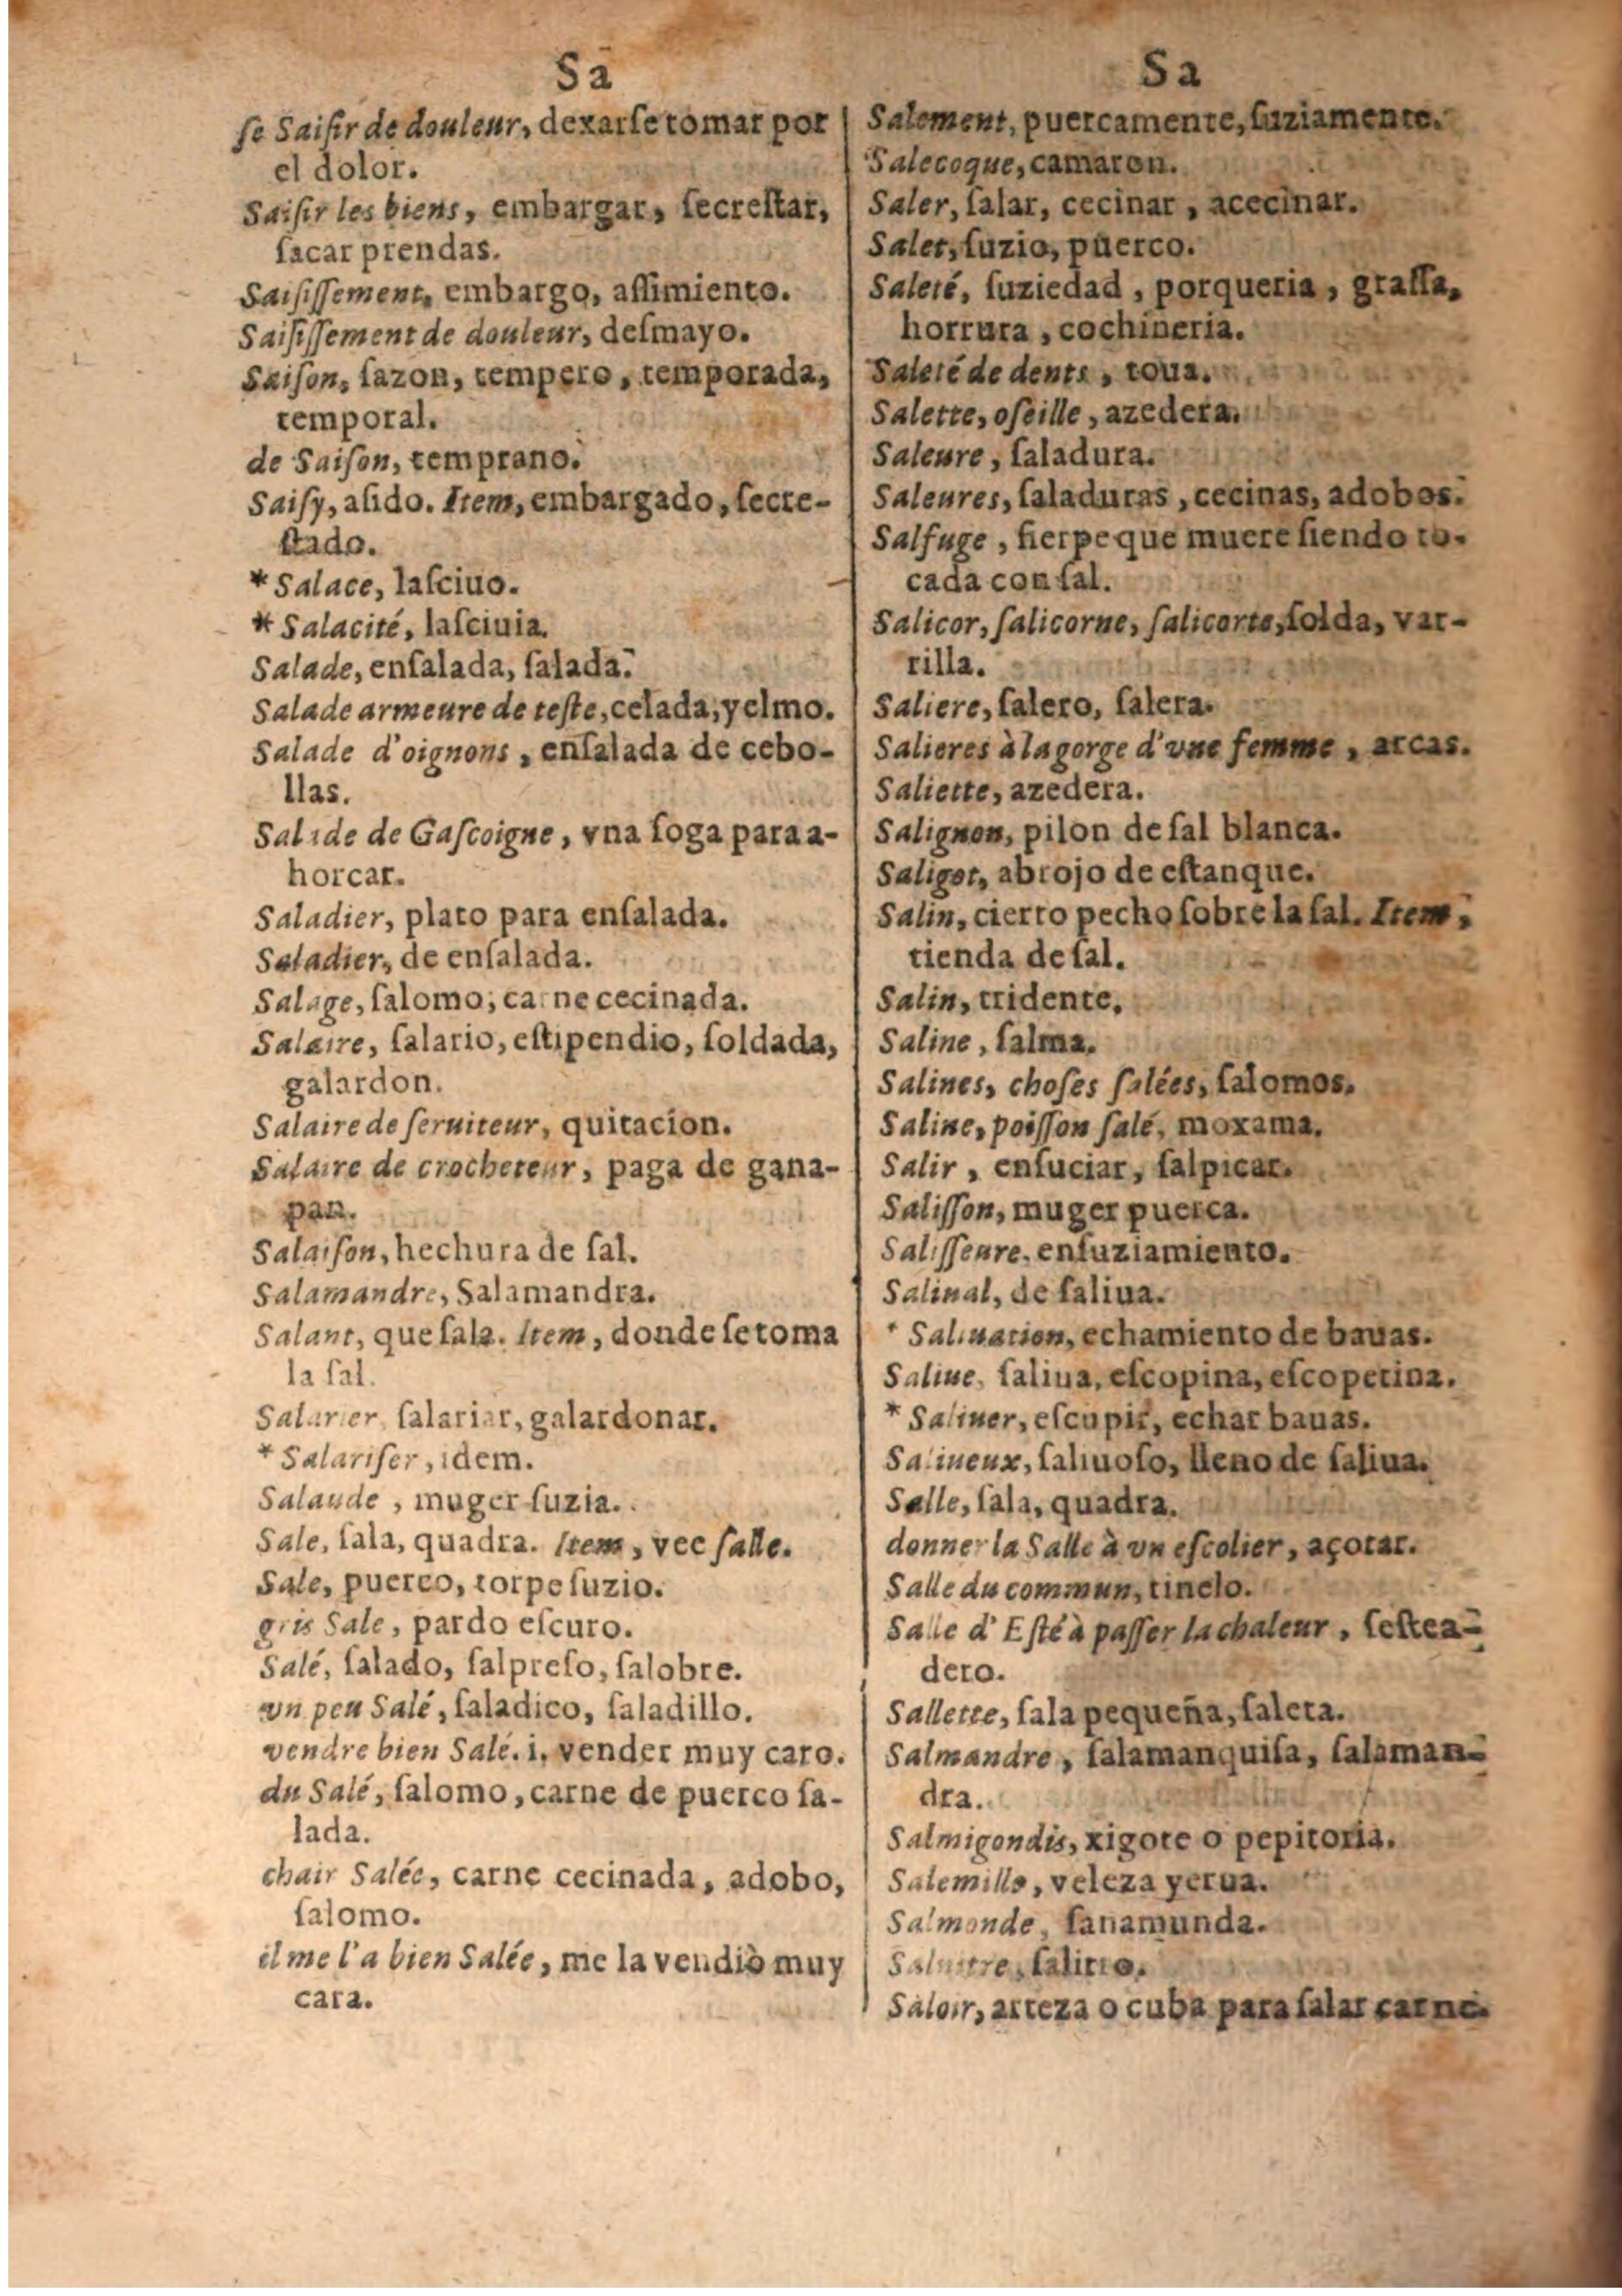 Sa
ſe Saiſir de douleur, dexarſe tomar por
el dolor.
Saiſir les biens, embargar, ſecreſtar,
ſacar prendas.
Saiſiſſement, embargo, aſſimiento.
Saiſiſſement de douleur, deſmayo.
Saiſon, ſazon, tempero, temporada,
temporal.
de Saiſon, temprano.
Saiſy, aſido. Item, embargado, ſecre-
ſtado.
* Salace, laſciuo.
* Salacité, laſciuia.
Salade, enſalada, ſalada.
Salade armeure de teſte, celada, yelmo.
Salade d'oignons, enſalada de cebo-
llas.
Salade de Gaſcoigne, vna ſoga para a-
horcar.
Saladier, plato para enſalada.
Saladier, de enſalada.
Salage, ſalomo, carne cecinada.
Salaire, ſalario, eſtipendio, ſoldada,
galardon.
Salaire de ſeruiteur, quitacion.
Salaire de crocheteur, paga de gana-
pan.
Salaiſon, hechura de ſal.
Salamandre, Salamandra.
Salant, que ſala. Item, donde ſe toma
la ſal.
Salarier, ſalariar, galardonar.
* Salariſer, idem.
Salaude, muger ſuzia.
Sale, ſala, quadra. Item, vee ſalle.
Sale, puerco, torpe ſuzio.
gris Sale, pardo eſcuro.
Salé, ſalado, ſalpreſo, ſalobre.
vn peu Salé, ſaladico, ſaladillo.
vendre bien Salé. i. vender muy caro.
du Salé, ſalomo, carne de puerco ſa-
lada.
chair Salée, carne cecinada, adobo,
ſalomo.
il me l'a bien Salée, me la vendiò muy
cara.
Sa
Salement, puercamente, ſuziamente.
Salecoque, camaron.
Saler, ſalar, cecinar, acecinar.
Salet, ſuzio, puerco.
Saleté, ſuziedad, porqueria, graſſa,
horrura, cochineria.
Saleté de dents, toua.
Salette, oſeille, azedera.
Saleure, ſaladura.
Saleures, ſaladuras, cecinas, adobos.
Salfuge, ſierpe que muere ſiendo to-
cada con ſal.
Salicor, ſalicorne, ſalicorte, ſolda, var-
rilla.
Saliere, ſalero, ſalera.
Salieres à la gorge d'vne femme, arcas.
Saliette, azedera.
Salignon, pilon de ſal blanca.
Saligot, abrojo de eſtanque.
Salin, cierto pecho ſobre la ſal. Item,
tienda de ſal.
Salin, tridente.
Saline, ſalma.
Salines, choſes ſalées, ſalomos.
Saline, poiſſon ſalé, moxama.
Salir, enſuciar, ſalpicar.
Saliſſon, muger puerca.
Saliſſeure, enſuziamiento.
Saliual, de ſaliua.
* Saliuation, echamiento de bauas.
Saliue, ſaliua, eſcopina, eſcopetina.
* Saliuer, eſcupir, echar bauas.
Saliueux, ſaliuoſo, lleno de ſaliua.
Salle, ſala, quadra.
donner la Salle à vn eſcolier, açotar.
Salle du commun, tinelo.
Salle d'Eſté à paſſer la chaleur, ſeſtea-
dero.
Sallette, ſala pequeña, ſaleta.
Salmandre, ſalamanquiſa, ſalaman-
dra.
Salmigondis, xigote o pepitoria.
Salemille, veleza yerua.
Salmonde, ſanamunda.
ſalitro.
Saloir, arteza o cuba para ſalar carne.